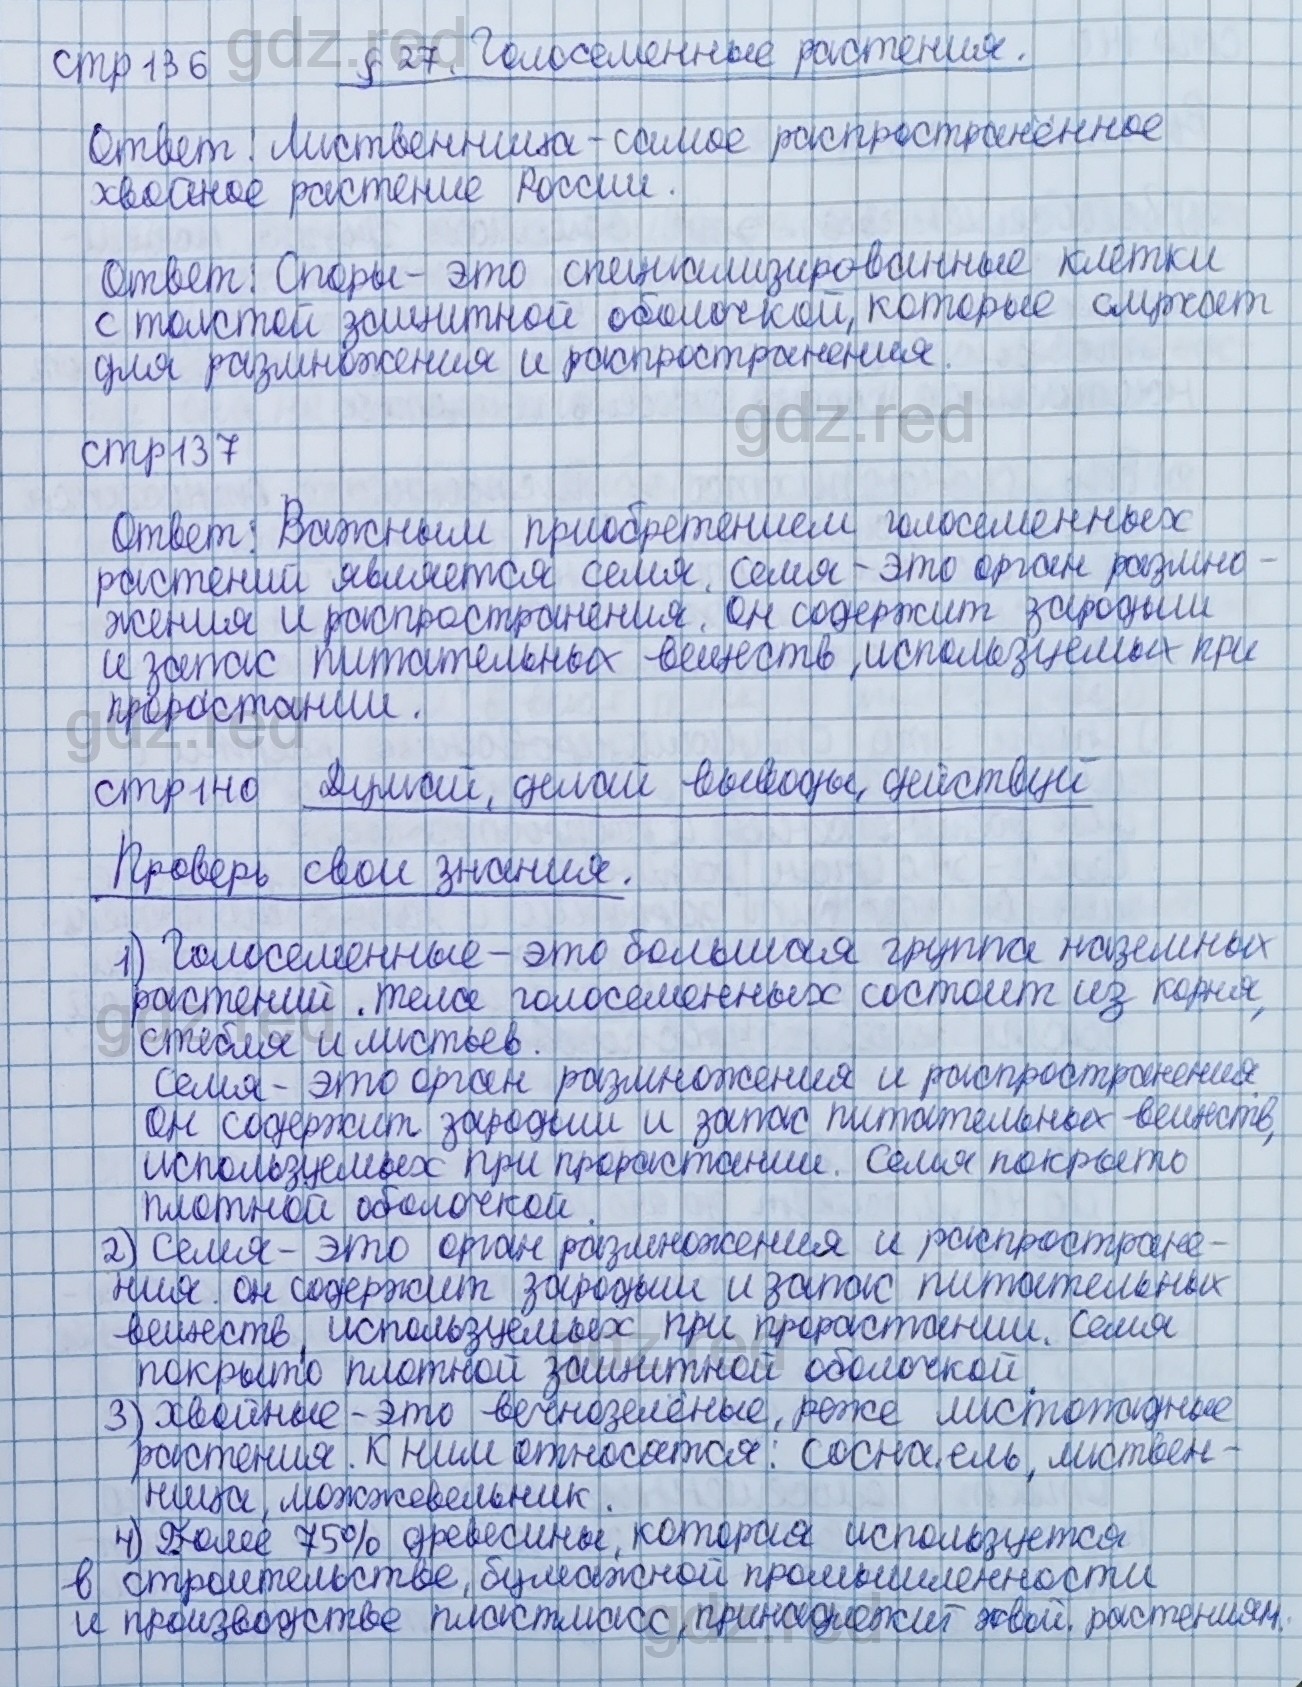 стр 136 § 27. Голосеменные растения.
Ответ: Лиственница - самое распространённое
хвойное растение России.
Ответ: Споры - это специализированные клетки
с толстой защитной оболочкой, которые служат
для размножения и распространения.
стр 137
Ответ: Важным приобретением голосеменных
растений является семя. Семя - это орган размно-
жения и распространения. Он содержит зародыш
и запас питательных веществ, используемых при
проростании.
стр 140 Думай, делай выводы, действуй
Проверь свои знания.
1) Голосеменные - это большая группа наземных
растений. Тела голосеменных состоит из корня,
стебля и листьев.
Семя - это орган размножения и распространения.
Он содержит зародыш и запас питательных веществ,
используемых при прорастании. Семя покрыто
плотной оболочкой.
2) Семя - это орган размножения и распростране-
ния. Он содержит зародыш и запас питательных
веществ, используемых при прорастании. Семя
покрыто плотной защитной оболочкой.
3) Хвойные - это вечнозелёные, реже листопадные
растения. К ним относятся: сосна, ель, листвен-
ница, можжевельник.
4) Более 75% древесины, которая используется
в строительстве, бумажной промышленности
и производстве пластмасс, принадлежит хвой. растениям.
gdz.red
gdz.red
gdz.red
gdz.red
gdz.red
gdz.red